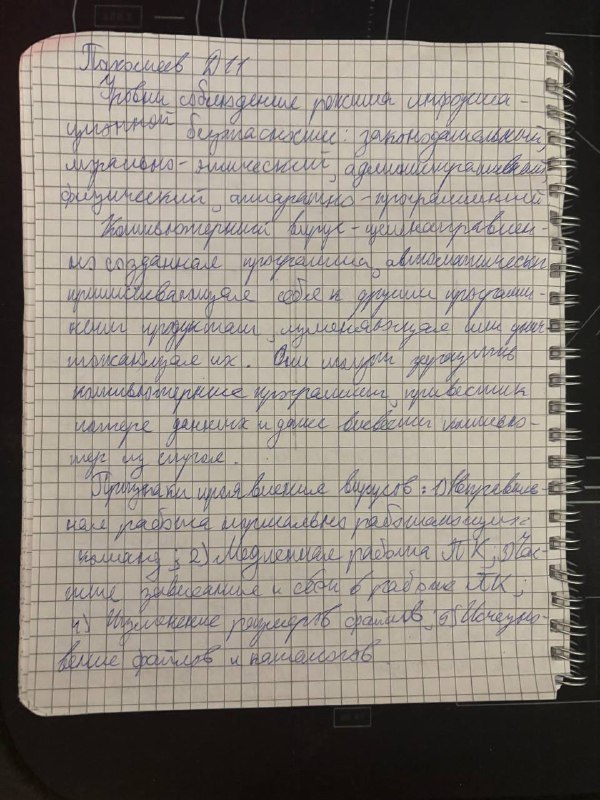 Пахомеев Д11
Уровни соблюдение режима информа-
ционной безопасности: законодательный,
морально-этический, административный
физический, аппаратно-программный
Компьютерный вирус - целенаправлен-
но созданная программа, автоматически
приписывающая себя к другим программ-
ным продуктам, изменяющая или унич-
тожающая их. Они могут
компьютерные программы, привести к
потере данных и даже вывести компью-
тер из строя.
Признаки проявления вирусов: 1) Неправиль-
ная работа нормально работающих
команд; 2) Медленная работа ПК; 3) Час-
тые зависания и сбои в работе ПК;
4) Изменение размеров файлов; 5) Исчезно-
вение файлов и каталогов.